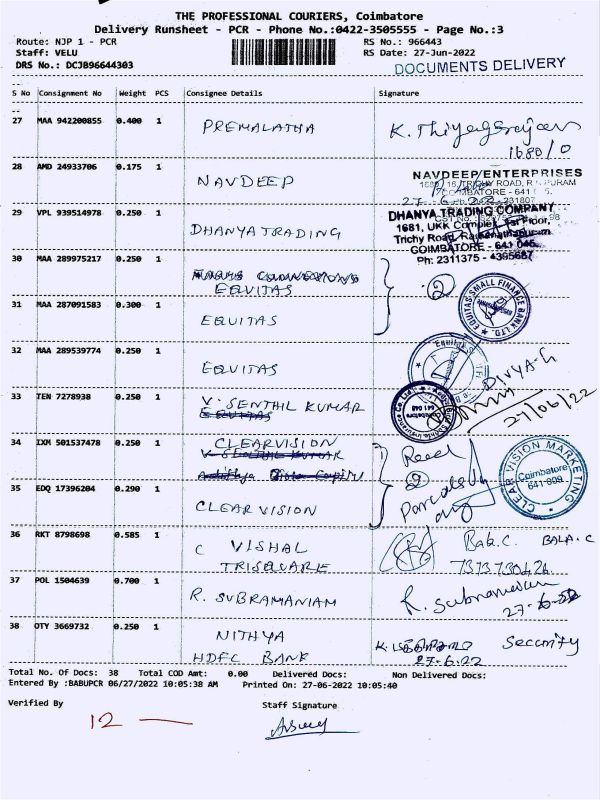 THE PROFESSIONAL COURIERS, Coimbatore
Delivery Runsheet - PCR - Phone No.:0422-3505555 - Page No.:3
Route: NJP 1 - PCR RS No.: 966443
Staff: VELU RS Date: 27-Jun-2022
DRS No.: DCJB96644303 DOCUMENTS DELIVERY
S No Consignment No Weight PCS Consignee Details Signature
27 MAA 942200855 0.400 1 PREMALATHA K. Thiyagarajan
1680/0
28 AMD 24933706 0.175 1 NAVDEEP NAVDEEP ENTERPRISES
TRICHY ROAD,
COIMBATORE - 641
29 VPL 939514978 0.250 1 DHANYA TRADING DHANYA TRADING COMPANY
1681, UKK Complex, 1st Floor,
Trichy Road, Ramanathapuram
COIMBATORE - 641 045.
Ph: 2311375 - 4395687
30 MAA 289975217 0.250 1 EQUITAS 2
EQUITAS SMALL FINANCE BANK LTD.
31 MAA 287091583 0.300 1 EQUITAS
32 MAA 289539774 0.250 1 EQUITAS
Equitas
DIVYA-G
33 TEN 7278938 0.250 1 V. SENTHIL KUMAR
EQUITAS
27/06/22
34 IXM 501537478 0.250 1 CLEARVISION Recd
V. SENTHIL KUMAR 2
Parcels
CLEAR VISION MARKETING
Coimbatore
641-009
35 EDQ 17396204 0.290 1 CLEAR VISION
36 RKT 8798698 0.585 1 C VISHAL Bala.C. BALA.C
TRISQUARE 7373730424
37 POL 1504639 0.700 1 R. SUBRAMANIAM R. Subramanian
27-6-22
38 OTY 3669732 0.250 1 NITHYA Security
HDFC BANK 27.6.22
Total No. Of Docs: 38 Total COD Amt: 0.00 Delivered Docs: Non Delivered Docs:
Entered By :BABUPCR 06/27/2022 10:05:38 AM Printed On: 27-06-2022 10:05:40
Verified By Staff Signature
12 —